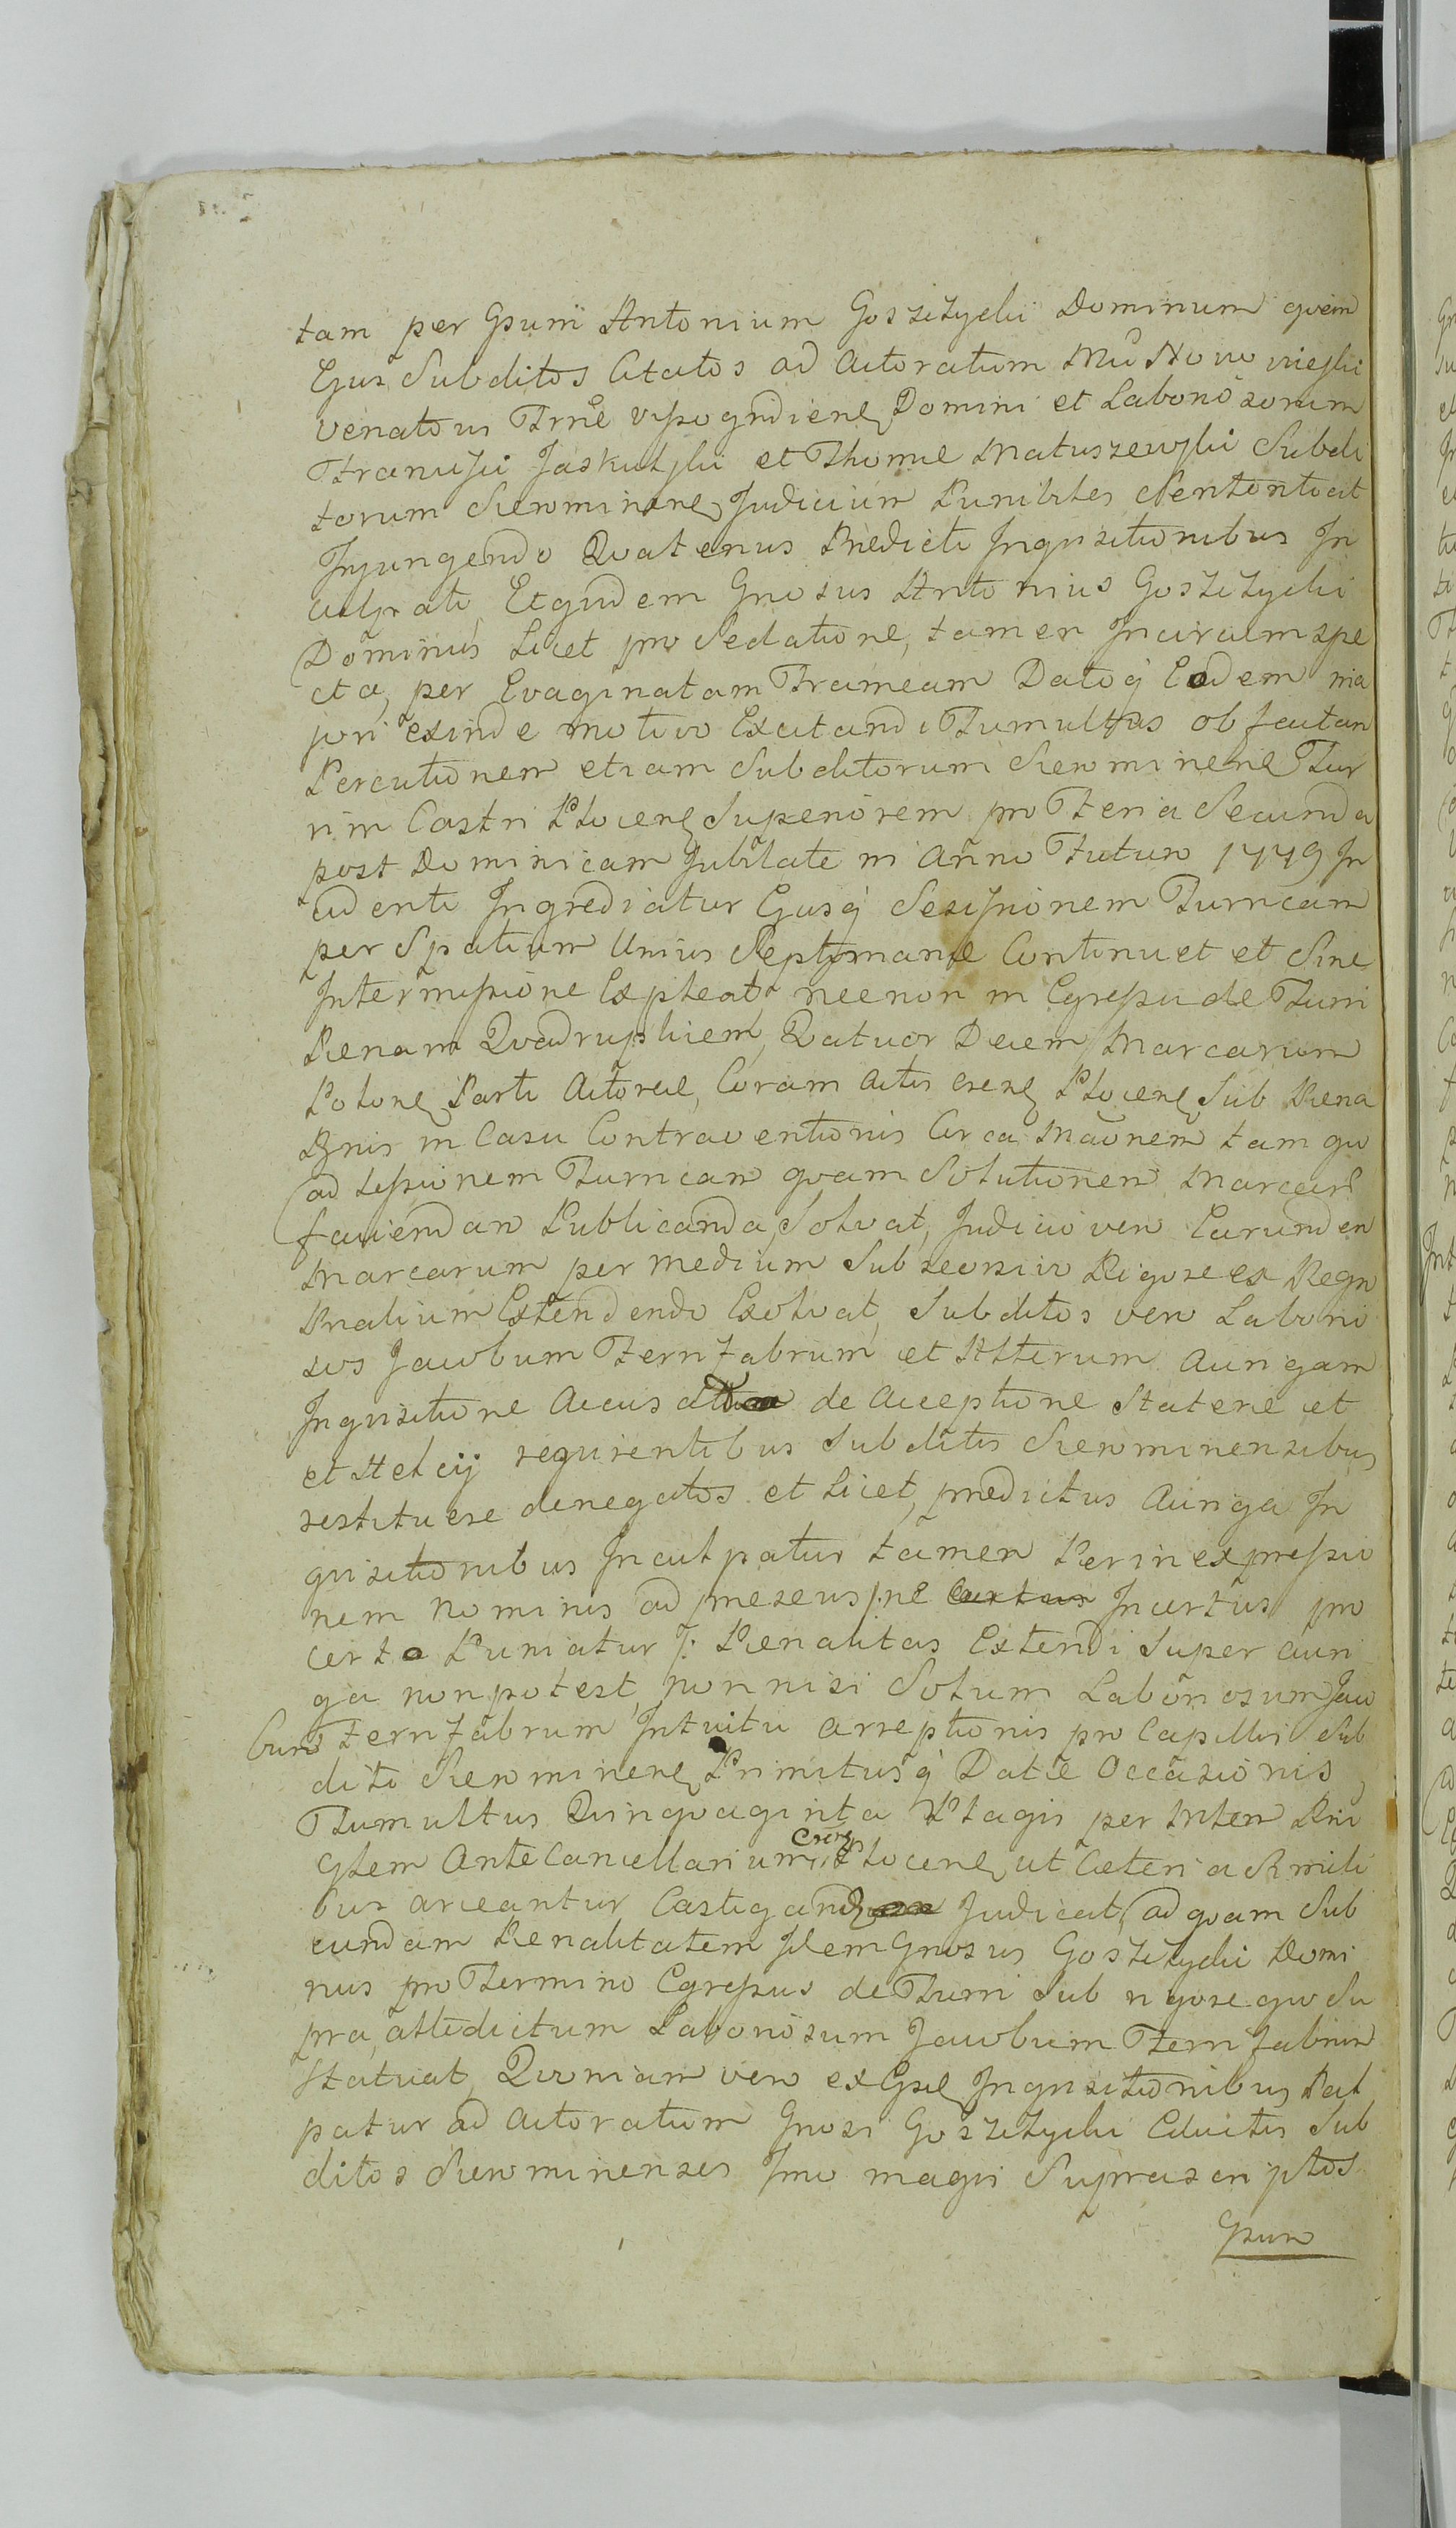 tam per Gsum Antonium Goszczycki Dominum qvam
Ejus Subditos Citatos ad Actoratum Mci Nowowieyski
venatoris Trrae vysogrdiens Domini et Laboriosorum
Francisci Jaskulski et Thomae Matuszewski Subdi
torum Sierominens Judicium Punibiles Sententiat
Injungendo Qvatenus Praedicti Inqvisitionibus In
culpati, Eqvidem Gnosus Antonius Goszczycki
Dominus Licet pro Sedatione, tamen Incircumspe
cta, per Evaginatam Frameam Datoq Eodem ma
jori exinde motivo Excitandi Tumultus ob factam
Percutionem etiam Subditorum Sierominens Tur
rim Castri Plocens Superiorem pro Feria Secunda
post Dominicam Jubilate in Anno Futuro 1779 In
cidenti Ingrediatur Ejusq Sessionem Turricam
per Spatium Unius Septymanae Continuet et Sine
Intermissione Expleat necnon in Egressu de Turri
Paenam Qvadruplicem, Qatuor Decem Marcarum
Polons Parti Actoreae, Coram Actis Csens Plocens Sub Paena
Bnis in Casu Contraventionis Circa Maonem tam qvo
ad sessionem Turricam qvam Solutionem Marcar
faciendam Publicanda, Solvat, Judicio vero Earundem
Marcarum per medium Sub recursivo Rigore ex Regn
Pnalium Extendendo Exolvat, Subditos vero Laborio
sos Jacobum Ferrifabrum et Alterum Aurigam
Inqvisitione Accusatos de Acceptione Staterae et
et Helcij reqvirentibus Subditis Sierominensibus
restituere denegatos et Licet, praedictus Auriga In
qvisitionibus Inculpatur tamen Per inexpressio
nem Nominis ad praesens /: ne Certus Incertus pro
certo Puniatur :/ Paenalitas Extendi Super auri
ga non potest, non nisi Solum Laboriosum Jaco
bum Ferrifabrum Intuitu arreptionis pro Capillis Sub
diti Sierominens Primitusq Datae Occasionis
Tumultus Qvinqvaginta Plagis per Inten Prin
cplem Ante Cancellarium Csens Plocens, ut Caeteri a Simili
bus arceantur Castigand Judicat, ad qvam Sub
eundam Paenalitatem Idem Gnosus Goszczycki Domi
nus pro Termino Egressus de Turri Sub rigore qvo Su
pra, attedictum Laboriosum Jacobum Ferrifabrum
Statuat, Qvoniam vero ex Gsae Inqvisitionibus Pal
patur ad Actoratum Gnosi Goszczycki Civitis Sub
ditos Sierominenses Imo magis Suprascriptos
Gsum